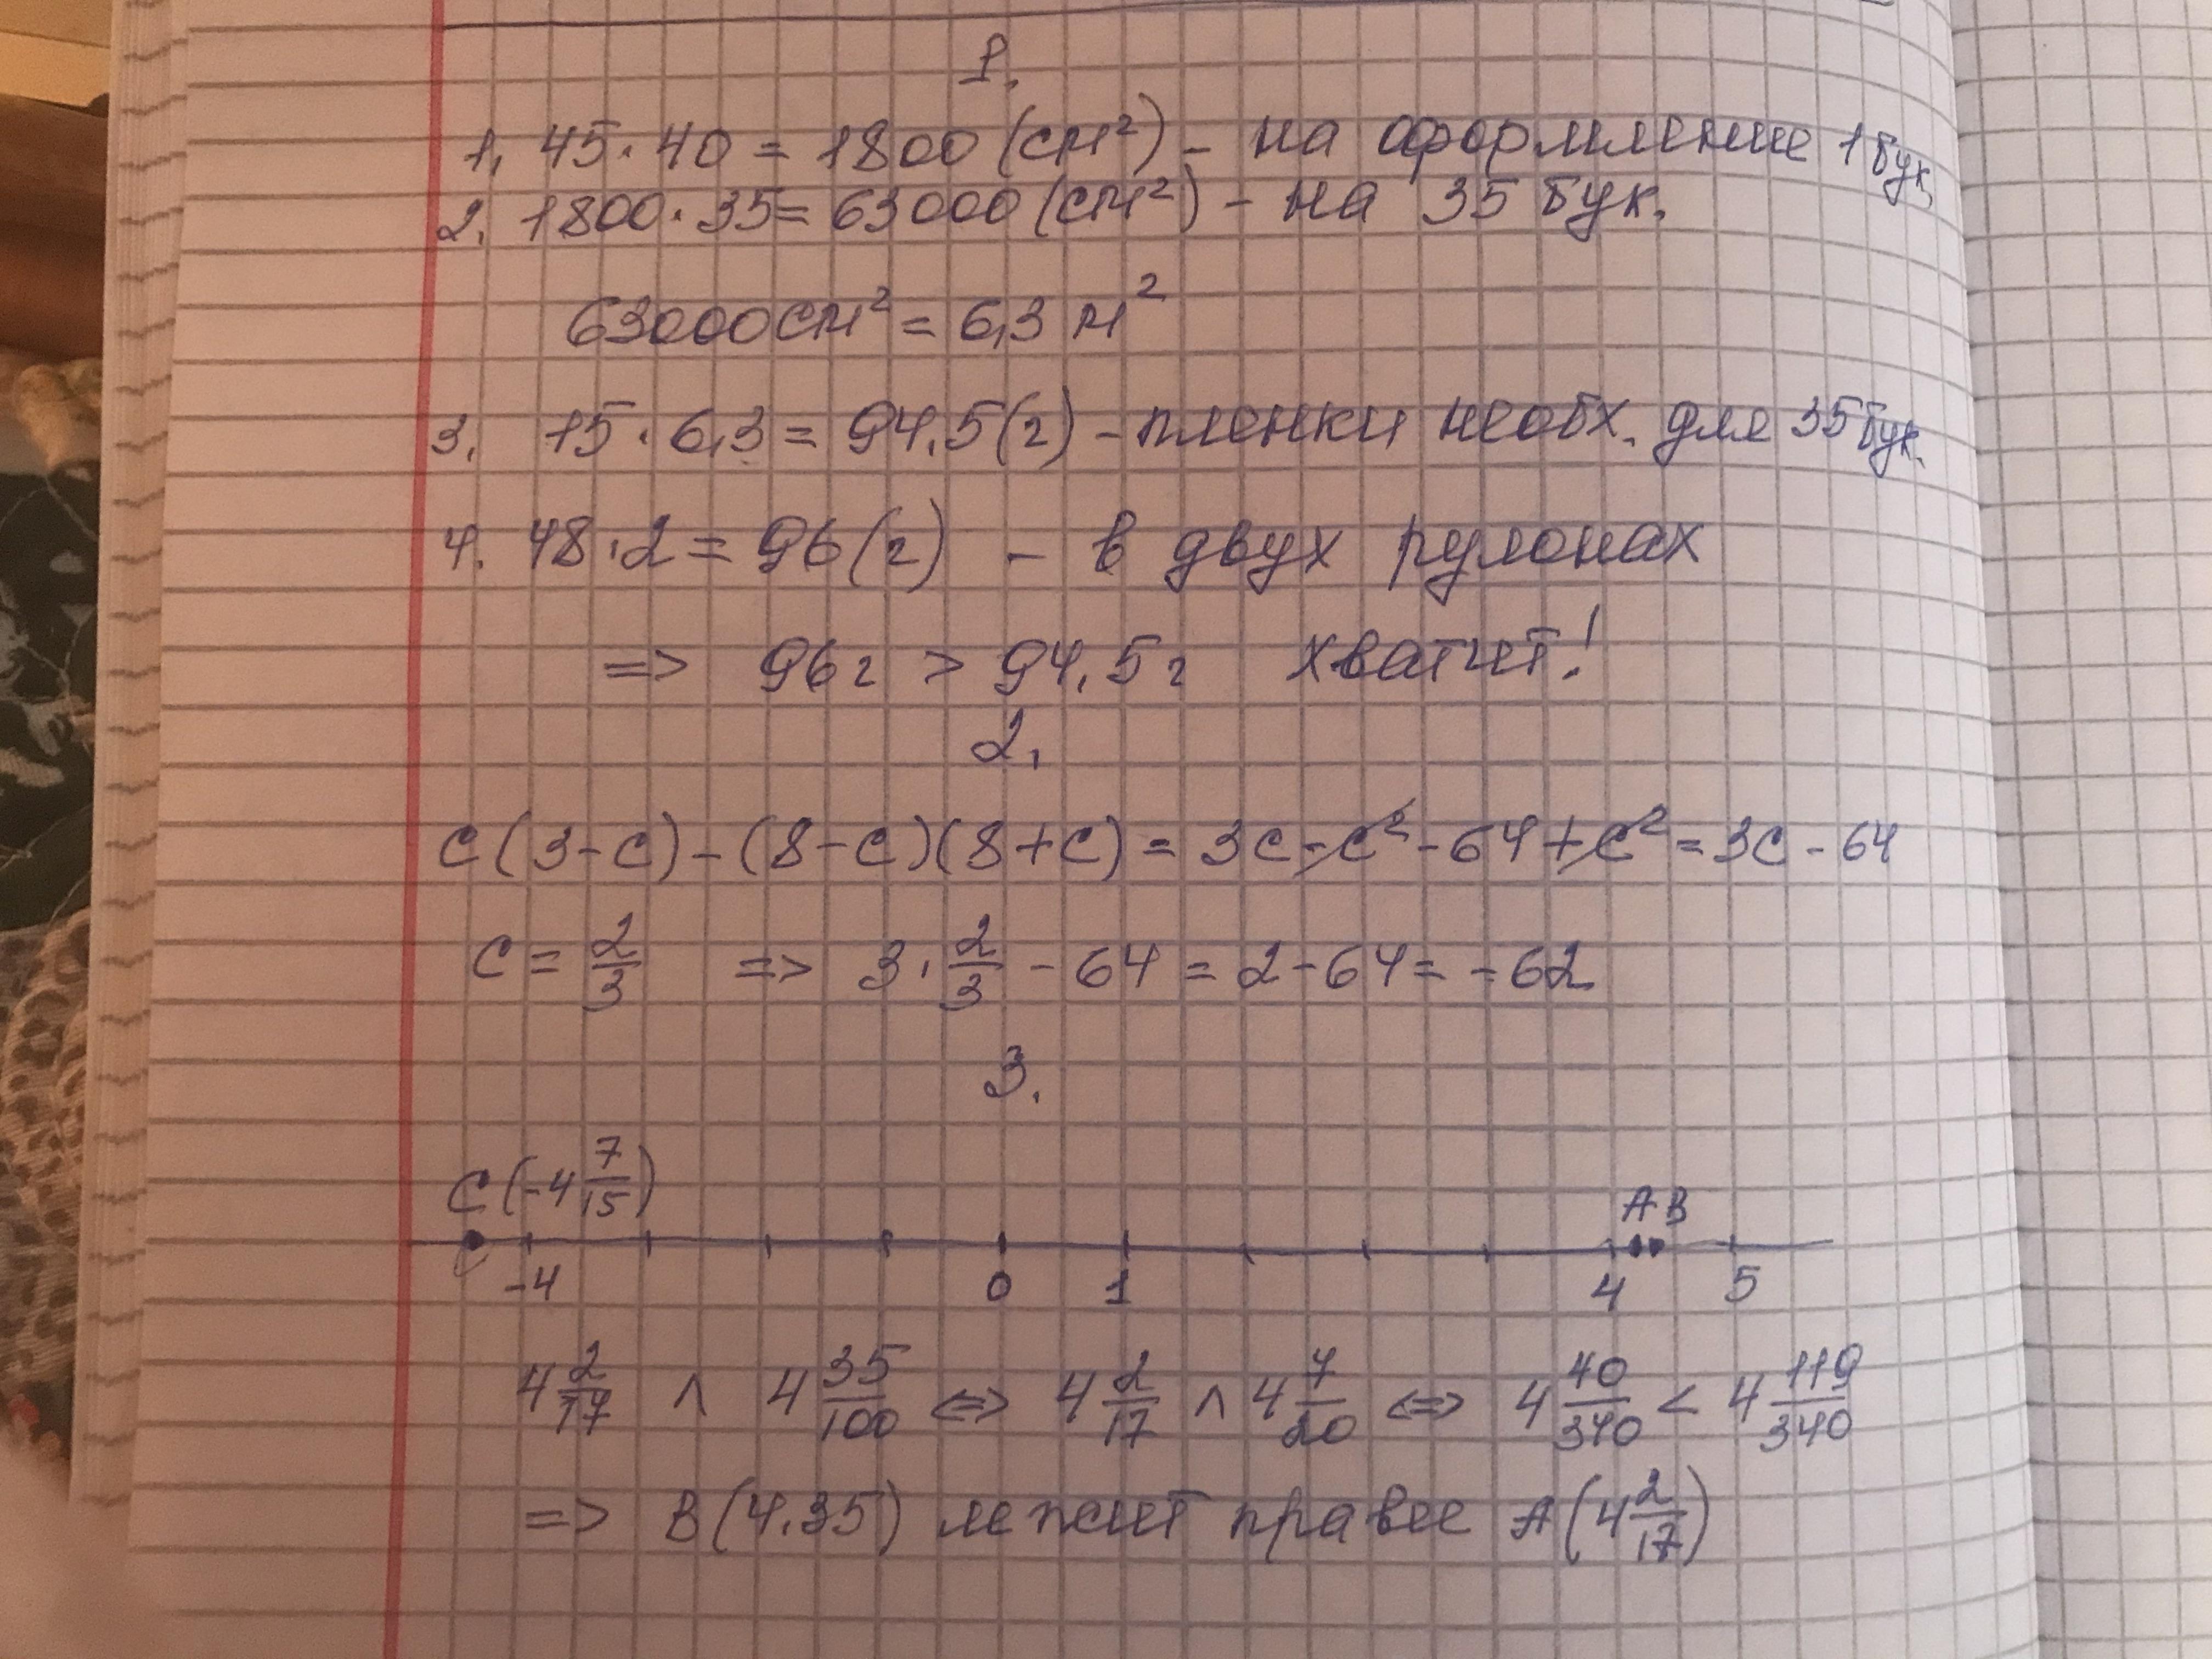 1.
1. 45·40 = 1800 (см²) - на оформление 1 бук.
2. 1800·35 = 63000 (см²) - на 35 бук.
63000см² = 6,3 м²
3. 15·6,3 = 94,5(г) - пленки необх. для 35 бук.
4. 48·2 = 96(г) - в двух рулонах
=> 96г > 94,5г хватит!
2.
c(3-c)-(8-c)(8+c) = 3c-c²-64+c² = 3c-64
c = 2/3 => 3·2/3 - 64 = 2-64 = -62
3.
C(-4 7/15) A B
-4 0 1 4 5
4 2/17 ∧ 4 35/100 <=> 4 2/17 ∧ 4 7/20 <=> 4 40/340 < 4 119/340
=> B(4,35) лежит правее A(4 2/17)